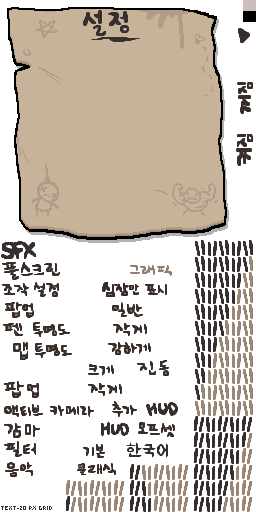 설정
SFX
풀스크린 그래픽
조각 설정 심장만 표시
팝업 일반
펜 투명도 작게
맵 투명도 강하게
크게 진동
팝업 작게
액티브 카메라 추가 HUD
감마 HUD 오프셋
필터 기본 한국어
음악 클래식
TEXT-20 PX GRID